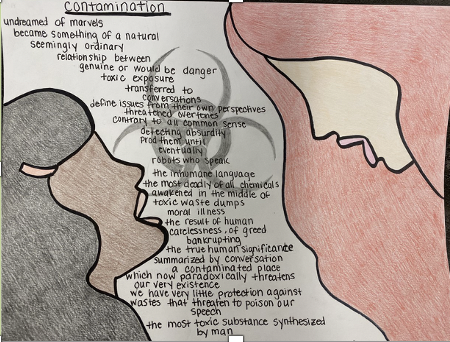 contamination
undreamed of marvels
became something of a natural
seemingly ordinary
relationship between
genuine or would be danger
toxic exposure
transferred to
conversations
define issues from their own perspectives
threatened overtones
contrary to all common sense
detecting absurdity
prod them until
eventually
robots who speak
the inhumane language
the most deadly of all chemicals
awakened in the middle of
toxic waste dumps
moral illness
the result of human
carelessness, of greed
bankrupting
the true human significance
summarized by conversation
a contaminated place
which now paradoxically threatens
our very existence
we have very little protection against
wastes that threaten to poison our
speech
the most toxic substance synthesized
by man